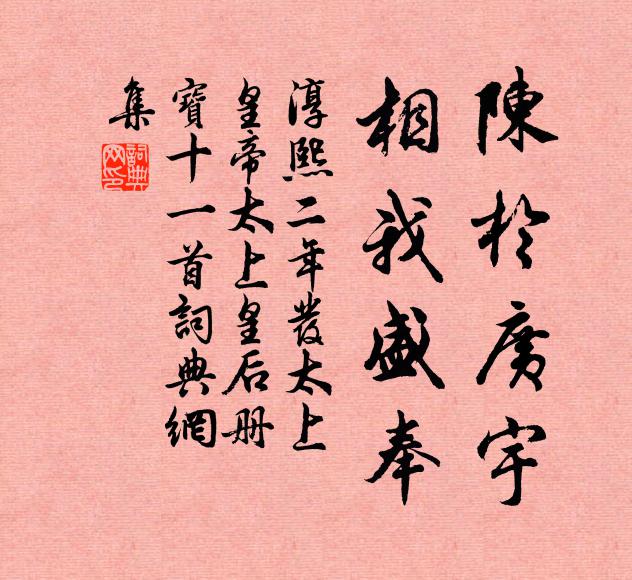 陳於廣宇
相我盛奉
淳熙二年發太上
皇帝太上皇后册
寶十一首詞典網
集
詞典網印